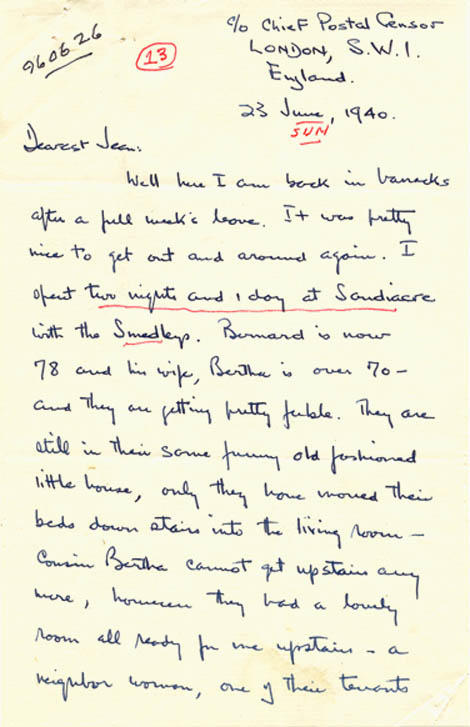 c/o Chief Postal Censor
960626
13
LONDON, S.W.1.
England.
23 June, 1940.
SUN
Dearest Jean:
Well here I am back in barracks
after a full week's leave. It was pretty
nice to get out and around again. I
spent two nights and 1 day at Sandiacre
with the Smedleys. Bernard is now
78 and his wife, Bertha is over 70 –
and they are getting pretty feeble. They are
still in their same funny old fashioned
little house, only they have moved their
beds down stairs into the living room –
Cousin Bertha cannot get upstairs any
more, however they had a lovely
room all ready for me upstairs – a
neighbor woman, one of their tenants